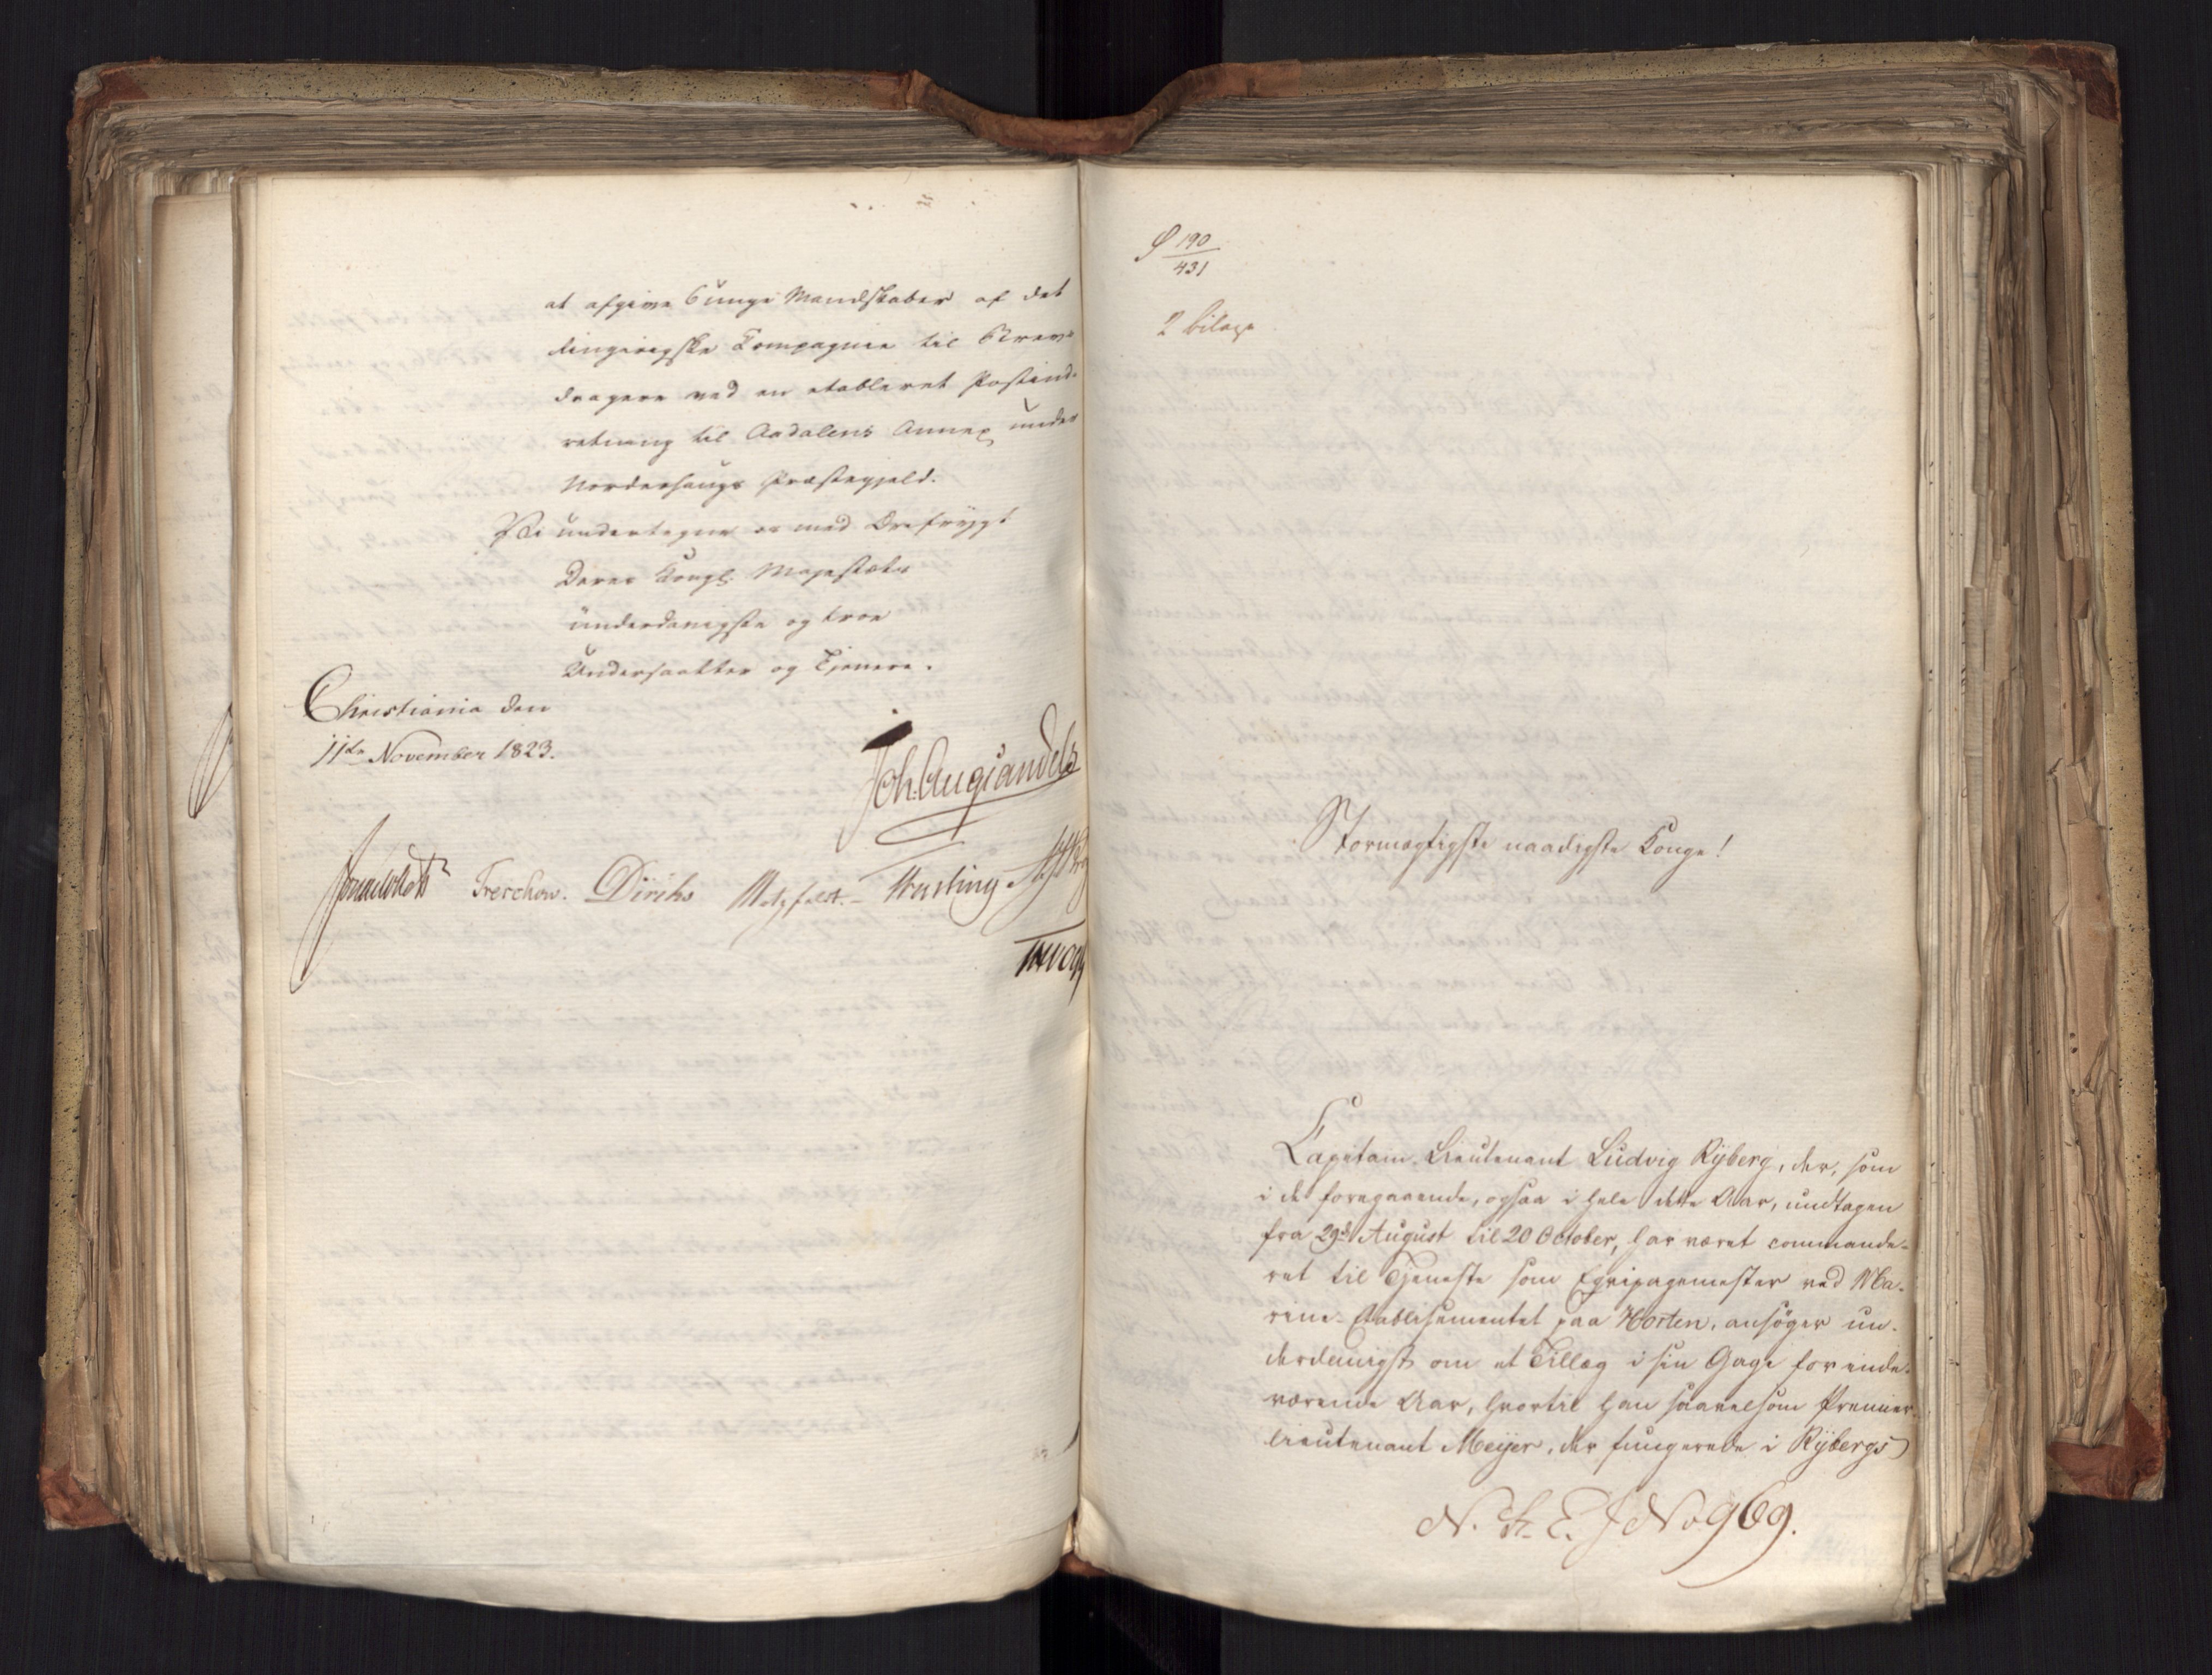 at afgive 6 unge Mandskaber af det
Ringerigske Compagnie til Brev-
dragere ved en etableret Postind-
retning til Aadalens Annex under
Norderhaugs Præstegjeld.
Vi undertegne os med Ærefrygt
Deres Kongl. Majestæts
underdanigste og troe
Undersaatter og Tjenere.
Christiania den
11te November 1823.
Joh. Aug. Sandels
Sommerhielm Treschow. Diriks Motzfeldt. Fasting
S 190
431
2 bilage
Stormægtigste naadigste Konge!
Capitain-Lieutenant Ludvig Ryberg, der, som
i de foregaaende, ogsaa i hele dette Aar, undtagen
fra 29de August til 20 October, har været commande-
ret til Tjeneste som Eqvipagemester ved Ma-
rine-Etablissementet paa Horten, ansøger un-
derdanigst om et Tillæg i sin Gage for inde-
værende Aar, hvortil han saavelsom Premier-
lieutenant Meijer, der fungerede i Rybergs
N. St. E. J No 969.